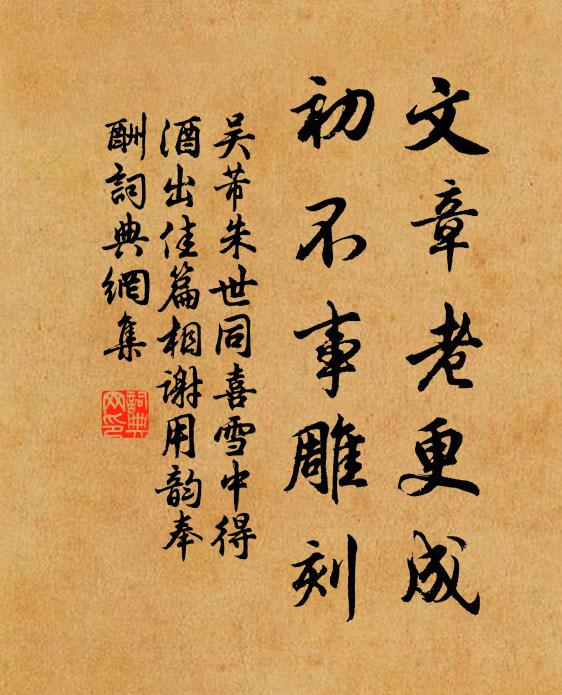 文章老更成
初不事雕刻
吴芾朱世同喜雪中得
酒出佳篇相谢用韵奉
酬詞典網集
詞典網印